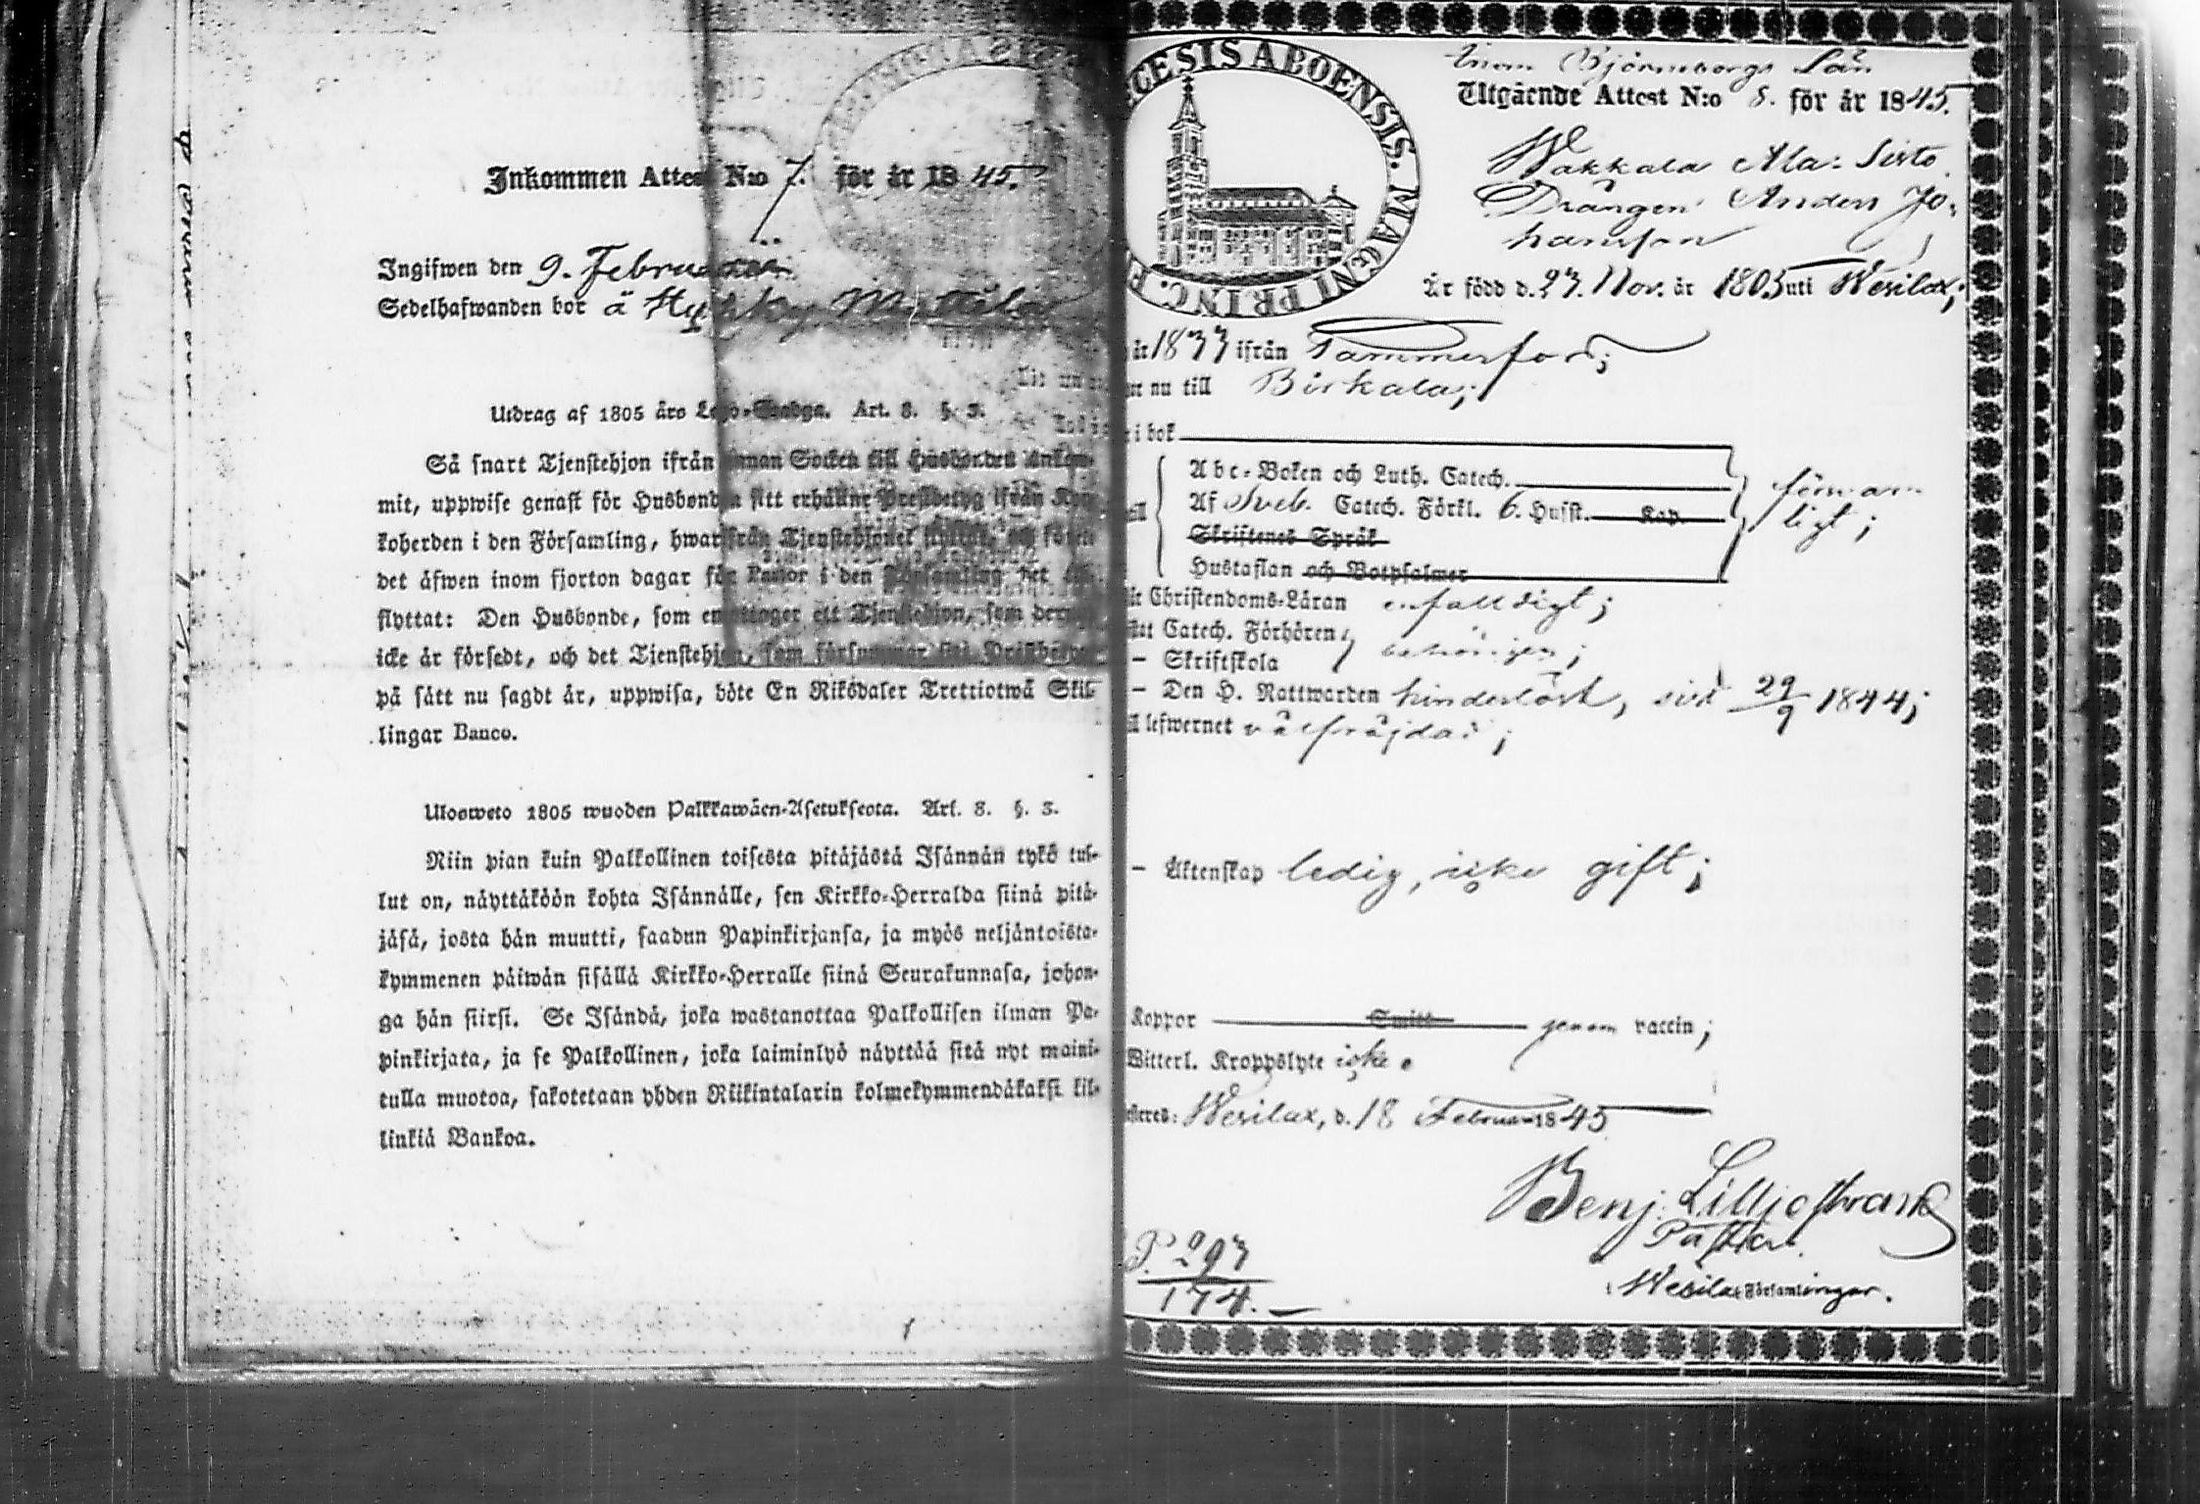 Inkommen Attest N:o 7. för år 1845.
Ingifwen den 9. Februari
Sedelhafwanden bor å
Utdrag af 1805 års Lego-Stadga. Art. 8. §. 3.
Så snart Tjenstehjon ifrån annan Socken till Husbonden ankom-
mit, uppwise genast för Husbonden sitt erhållne Prestbetyg ifrån Kyr-
koherden i den Församling, hwarifrån Tjenstehjonet flyttat, och
det äfwen inom fjorton dagar för Pastor i den Församling det
flyttat: Den Husbonde, som emottager ett Tjenstehjon, som
icke är försedt, och det Tjenstehjon, som försummar sitt Prestbetyg
på sätt nu sagdt är, uppwisa, böte En Riksdaler Trettiotwå Skil-
lingar Banco.
Ulosweto 1805 wuoden Palkkawäen-Asetuksesta. Art. 8. §. 3.
Niin pian kuin Palkollinen toisesta pitäjästä Isännän tykö tul-
lut on, näyttäköön kohta Isännälle, sen Kirkko-Herralda siinä pitä-
jäsä, josta hän muutti, saadun Papinkirjansa, ja myös neljäntoista-
kymmenen päiwän sisällä Kirkko-Herralle siinä Seurakunnasa, johon-
ga hän siirsi. Se Isändä, joka wastanottaa Palkollisen ilman Pa-
pinkirjata, ja se Palkollinen, joka laiminlyö näyttää sitä nyt maini-
tulla muotoa, sakotetaan yhden Riikintalarin kolmekymmendäkaksi kil-
linkiä Bankoa.
CESIS ABOENSIS. MAGNI PRINC. F
inom Björneborgs Län
Utgående Attest N:o 8. för år 1845.
Wakkala Ala-Sisto
Drängen Anders Jo-
hansson
Är född d. 27. Nov. år 1805 uti Wesilax;
år 1833 ifrån Tammerfors;
nu till Birkala;
i bok
Abc-Boken och Luth. Catech.
Af Sveb. Catech. Förkl. 6. Hufst. Kap.
Skriftenes Språk
Hustaflan och Botpsalmer
förswar-
ligt;
Christendoms-Läran enfalldigt;
Catech. Förhören
– Skriftskola
behörigen;
– Den H. Nattwarden hinderlöst, sist 29/9 1844;
lefwernet välfräjdad;
– Äktenskap ledig, icke gift;
Koppor Smitt genom vaccin;
Witterl. Kroppslyte icke.
Wesilax, d. 18 Februari 1845
Benj. Lilljestrand
Pastor.
Wesilax Församlingar.
P. 297
174.